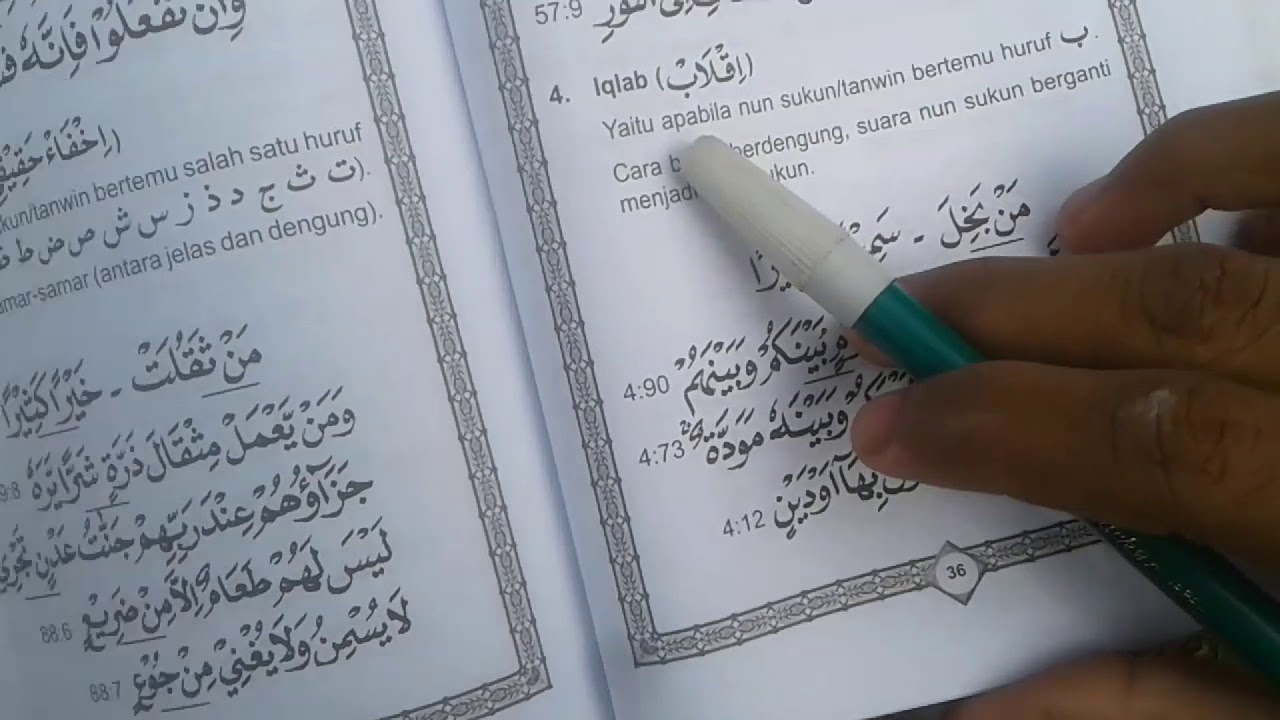 وَاِنْ تَفْعَلُوْا فَاِنَّهٗ
(اِخْفَاءْ
kun/tanwin bertemu salah satu huruf
ت ث ج د ذ ز س ش ص ض ط).
amar-samar (antara jelas dan dengung).
مَنْ ثَقُلَتْ - خَيْرًا كَثِيْرًا
وَمَنْ يَّعْمَلْ مِثْقَالَ ذَرَّةٍ شَرًّا يَّرَهٗ
جَزَآؤُهُمْ عِنْدَ رَبِّهِمْ جَنّٰتُ عَدْنٍ تَجْرِيْ
لَيْسَ لَهُمْ طَعَامٌ اِلَّا مِنْ ضَرِيْعٍ 88:6
لَا يُسْمِنُ وَلَا يُغْنِيْ مِنْ جُوْعٍ 88:7
57:9
4. Iqlab (اِقْلَابْ)
Yaitu apabila nun sukun/tanwin bertemu huruf ب.
Cara berdengung, suara nun sukun berganti
مَنْ بَخِلَ -
بَيْنَكُمْ وَبَيْنَهُمْ 4:90
وَبَيْنَهٗ مَوَدَّةٌ 4:73
بِهَآ اَوْ دَيْنٍ 4:12
36